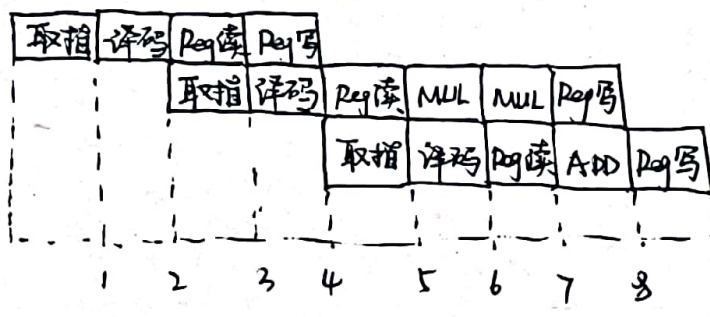 取指 译码 Reg读 Reg写
取指 译码 Reg读 MUL MUL Reg写
取指 译码 Reg读 ADD Reg写
1 2 3 4 5 6 7 8